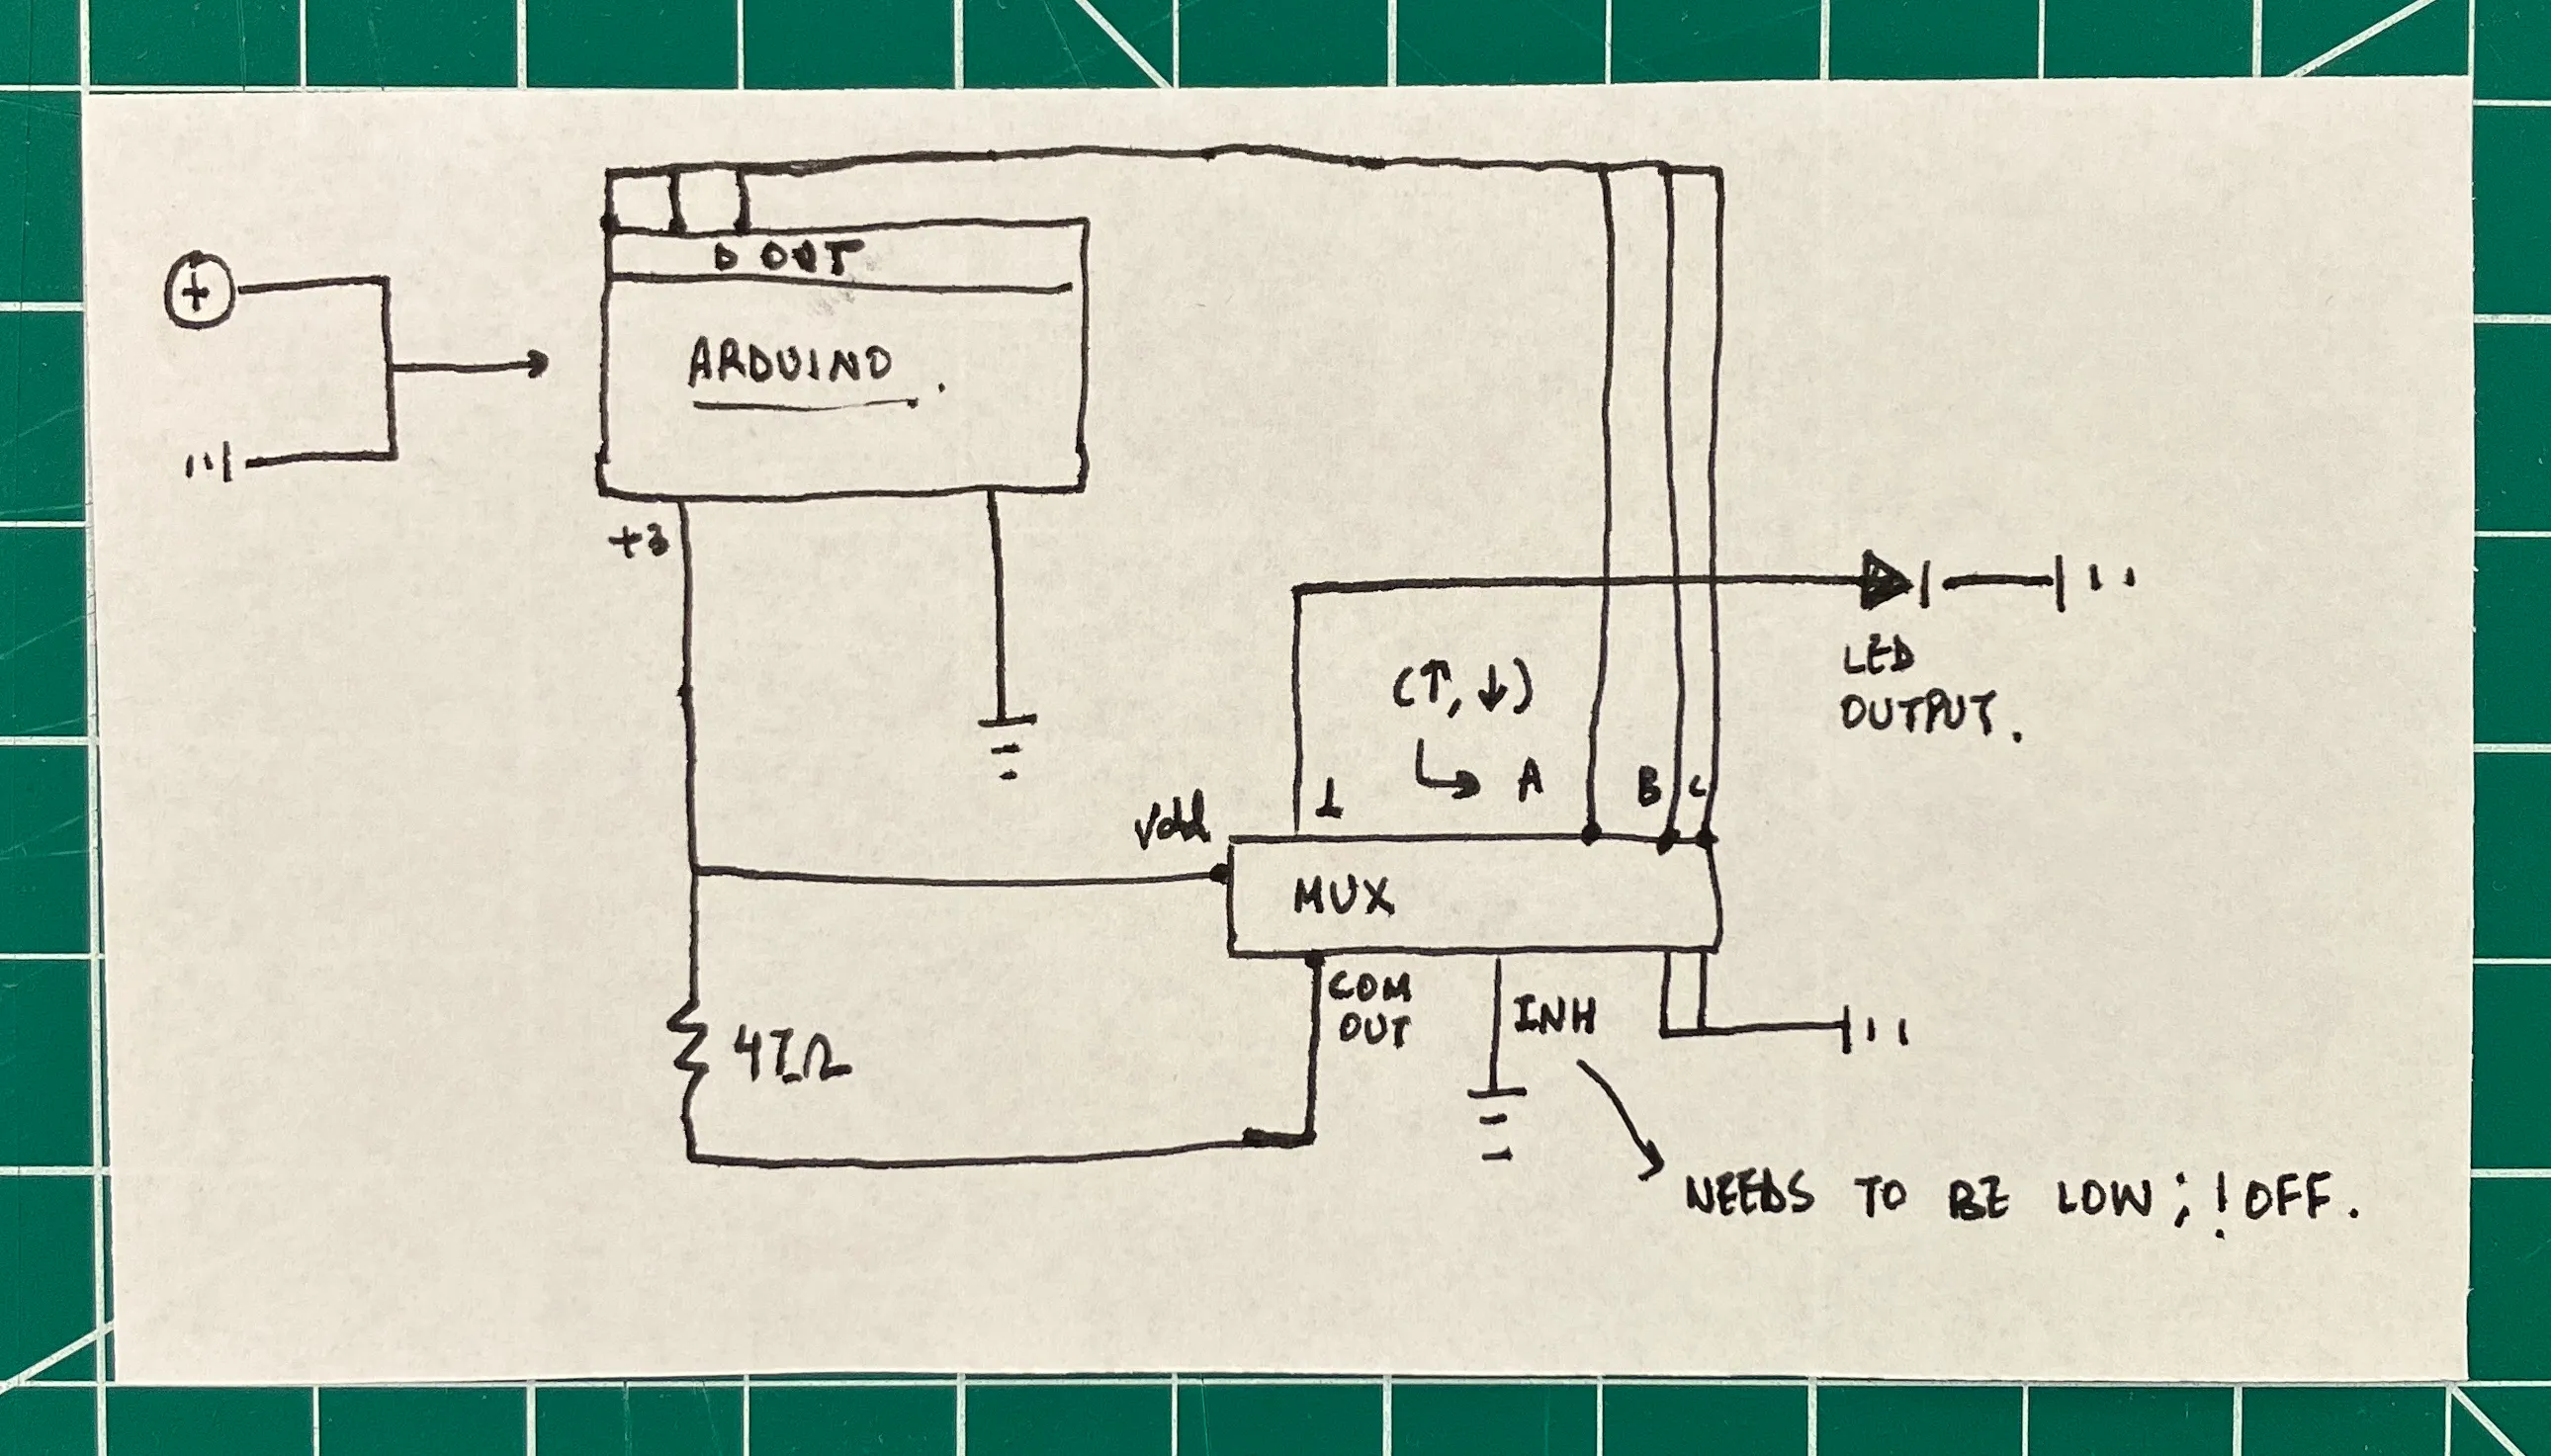 D OUT
+
ARDUINO.
+3
LED
OUTPUT.
(↑, ↓)
↳ A B C
1
Vdd
MUX
COM
OUT
INH
47Ω
NEEDS TO BE LOW; !OFF.